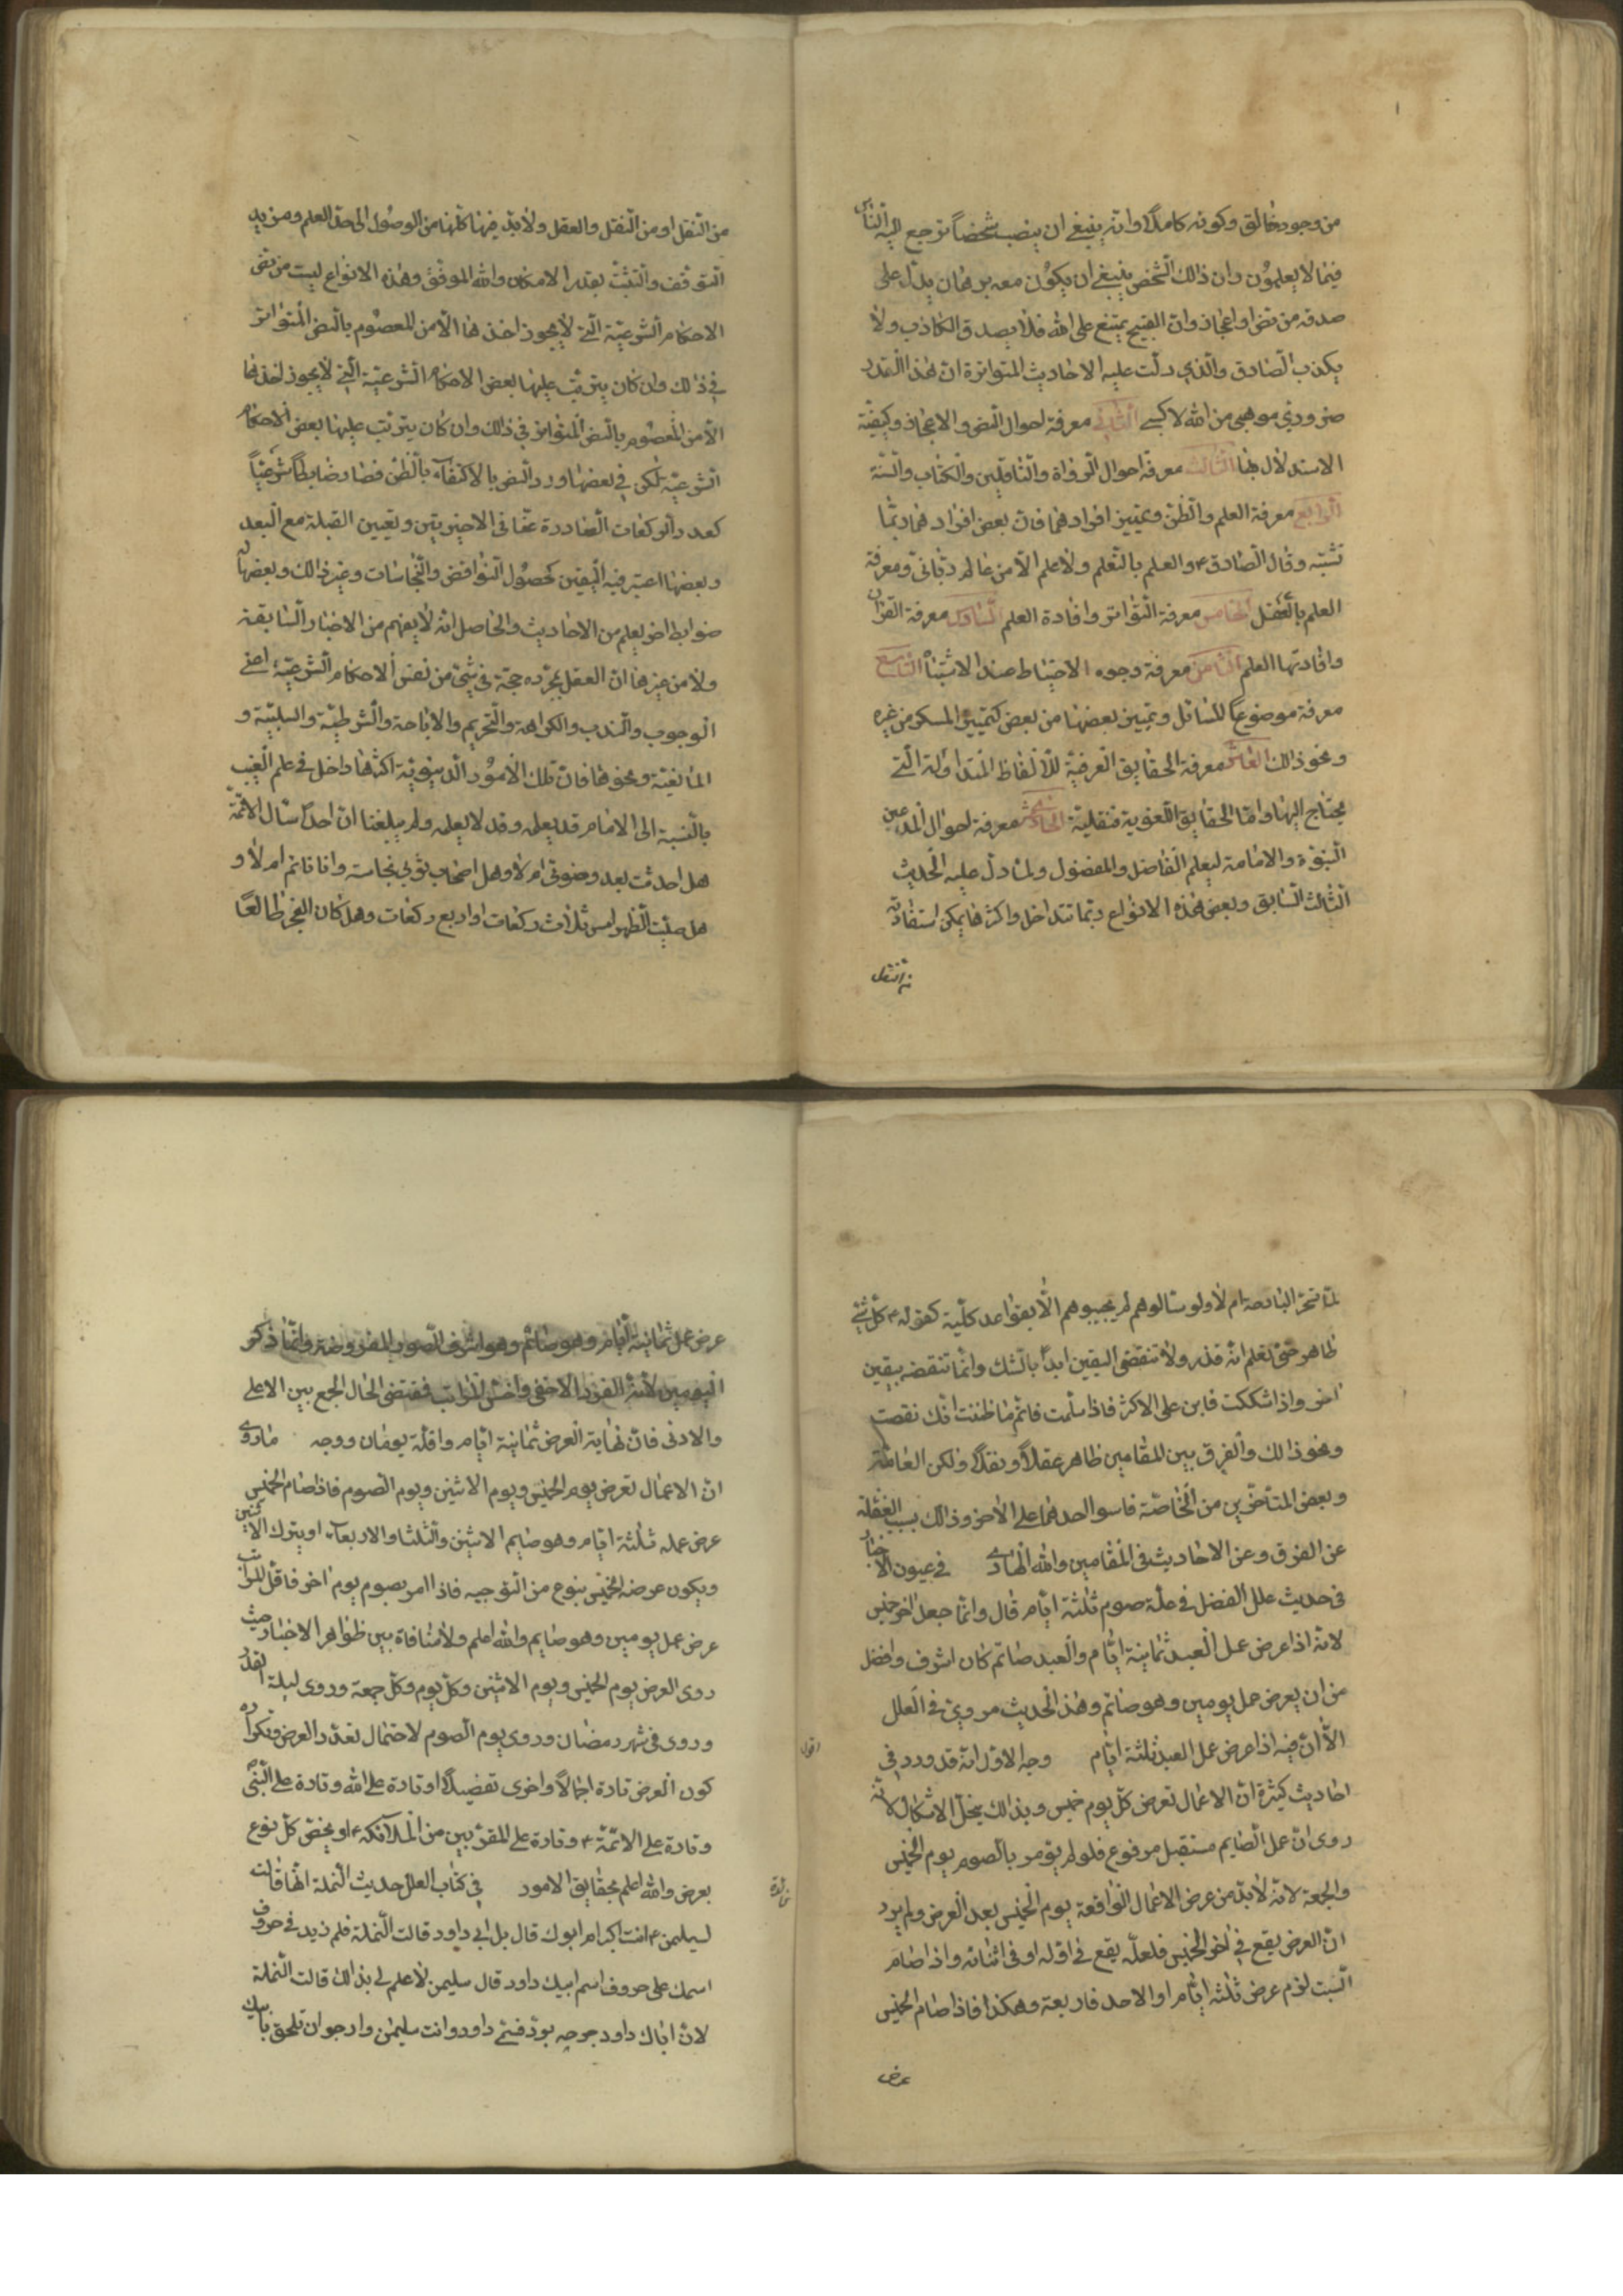 من وجود خالق وكونه كاملا وانه ينبغى ان ينصب شخصا ترجع اليه الناس
فيما لا يعلمون وان ذلك الشخص ينبغى ان يكون معه برهان يدل على
صدقه من نص او اعجاز وان القبيح يمتنع على الله فلا يصدق الكاذب ولا
يكذب الصادق والذي دلت عليه الاحاديث المتواترة ان هذا القدر
ضروري موهبى من الله لا كسبى الثانى معرفة احوال النص والاعجاز وكيفية
الاستدلال بها الثالث معرفة احوال الرواة والناقلين والكتاب والسنة
الرابع معرفة العلم والظن وتمييز افرادهما فان بعض افرادهما ربما
تشتبه وقال الصادق ع والعلم بالتعلم ولا علم الا من عالم ربانى ومعرفة
العلم بالعقل الخامس معرفة التواتر وافادة العلم السادس معرفة القران
وافادتها العلم الثامن معرفة وجوه الاحتياط عند الاشتباه التاسع
معرفة موضوع المسائل وتمييز بعضها من بعض كتمييز المسكر من غيره
ونحو ذلك العاشر معرفة الحقايق العرفية للالفاظ المتداولة التى
يحتاج اليها واما الحقايق اللغوية فنقلية الحادى عشر معرفة احوال المدعين
النبوة والامامة ليعلم الفاضل والمفضول ولما دل عليه الحديث
الثالث السابق وبعض هذه الانواع ربما تتداخل واكثرها يمكن استفادته
من النقل
من النقل او من النقل والعقل ولا بد فيها كلها من الوصول الى حد العلم ومزيد
التوقف والتثبت بقدر الامكان والله الموفق وهذه الانواع ليست من نفس
الاحكام الشرعية التى لا يجوز اخذها الا من المعصوم بالنص المتواتر
فى ذلك وان كان يترتب عليها بعض الاحكام الشرعية التى لا يجوز اخذها
الا من المعصوم بالنص المتواتر فى ذلك وان كان يترتب عليها بعض الاحكام
الشرعية لكن فى بعضها ورد النص بالاكتفاء بالظن فصار ضابطا شرعيا
كعدد الركعات الصادرة عنا فى الاخيرتين وتعيين القبلة مع البعد
وبعضها اعتبر فيه اليقين كحصول النواقض والنجاسات وغير ذلك وبعضها له
ضوابط اخر يعلم من الاحاديث والحاصل انه لا يفهم من الاخبار السابقة
ولا من غيرها ان العقل بمجرده حجة فى شئ من نفس الاحكام الشرعية اعنى
الوجوب والندب والكراهة والتحريم والاباحة والشرطية والسببية و
المانعية ونحوها فان تلك الامور الدنيوية اكثرها داخل فى علم الغيب
بالنسبة الى الامام قد يعلمه وقد لا يعلمه ولم يبلغنا ان احدا سأل الائمة
هل احدثت بعد وضوئى ام لا وهل اصحاب ثوبى نجاسة وانا نائم ام لا و
هل صليت الظهر امس ثلاث ركعات او اربع ركعات وهل كان الفجر طالعا
لما تسحرت البارحة ام لا ولو سالوهم لم يجيبوهم الا بقواعد كلية كقوله ع كل شئ
طاهر حتى تعلم انه قذر ولا تنقض اليقين ابدا بالشك وانما تنقضه بيقين
اخر واذا شككت فابن على الاكثر فاذا سلمت فاتم ما ظننت انك نقصت
ونحو ذلك والفرق بين المقامين ظاهر عقلا ونقلا ولكن العامة
وبعض المتأخرين من الخاصة قاسوا احدهما على الاخر وذلك بسبب الغفلة
عن الفرق وعن الاحاديث فى المقامين والله الهادى فى عيون الاخبار
فى حديث علل الفضل فى علة صوم ثلثة ايام قال وانما جعل اخر خميس
لانه اذا عرض عمل العبد ثمانية ايام والعبد صائم كان اشرف وافضل
من ان يعرض عمل يومين وهو صائم وهذا الحديث مروى فى العلل
الا ان فيه اذا عرض عمل العبد ثلثة ايام وجه الاول انه قد ورد فى
اقول
احاديث كثيرة ان الاعمال تعرض كل يوم خميس وبذلك ينحل الاشكال لانه
روى ان عمل الصايم مستقبل مرفوع فلو لم يؤمر بالصوم يوم الخميس
والجمعة لانه لا بد من عرض الاعمال الواقعة يوم الخميس بعد العرض ولم يرد
ان العرض يقع فى اخر الخميس فلعله يقع فى اوله او فى اثنائه واذا صام
السبت لزم عرض ثلثه ايام او الاحد فاربعة وهكذا فاذا صام الخميس
عرض
عرض عمل ثمانية ايام وهو صائم وهو اشرف الصوم المفروض وانما ذكر
اليومين لانه الفرد الاخفى واخس المراتب فقتضى الحال الجمع بين الاعلى
والادنى فان نهاية العرض ثمانية ايام واقله يومان ووجه ما روى
ان الاعمال تعرض يوم الخميس ويوم الاثنين ويوم الصوم فاذا صام الخميس
عرض عمله ثلثة ايام وهو صايم الاثنين والثلثا والاربعاء او يترك الاثنين
ويكون عرضه الخميس بنوع من التوجيه فاذا امر بصوم يوم اخر فاقل المراتب
عرض عمل يومين وهو صايم والله اعلم ولا منافاة بين ظواهر الاخبار حيث
روى العرض يوم الخميس ويوم الاثنين وكل يوم وكل جمعة وروى ليلة القدر
وروى فى شهر رمضان وروى يوم الصوم لاحتمال تعدد العرض وتكراره
كون العرض تارة اجمالا واخرى تفصيلا او تارة على الله وتارة على النبى
وتارة على الائمة ع وتارة على المقربين من الملائكه ع او يختص كل نوع
بعرض والله اعلم بحقايق الامور فى كتاب العلل حديث النملة انها قالت
فائدة
لسليمن ع انت اكبر ام ابوك قال بل ابى داود قالت النملة فلم زيد فى حروف
اسمك على حروف اسم ابيك داود قال سليمن لا علم لى بذلك قالت النملة
لان اباك داود جرحه بود فسمى داود وانت سليمن وارجو ان تلحق بابيك